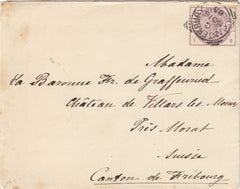 Madame
La Baronne Fr. de Graffenried
Château de Villars les Moines
Près Morat
Suisse
Canton de Fribourg